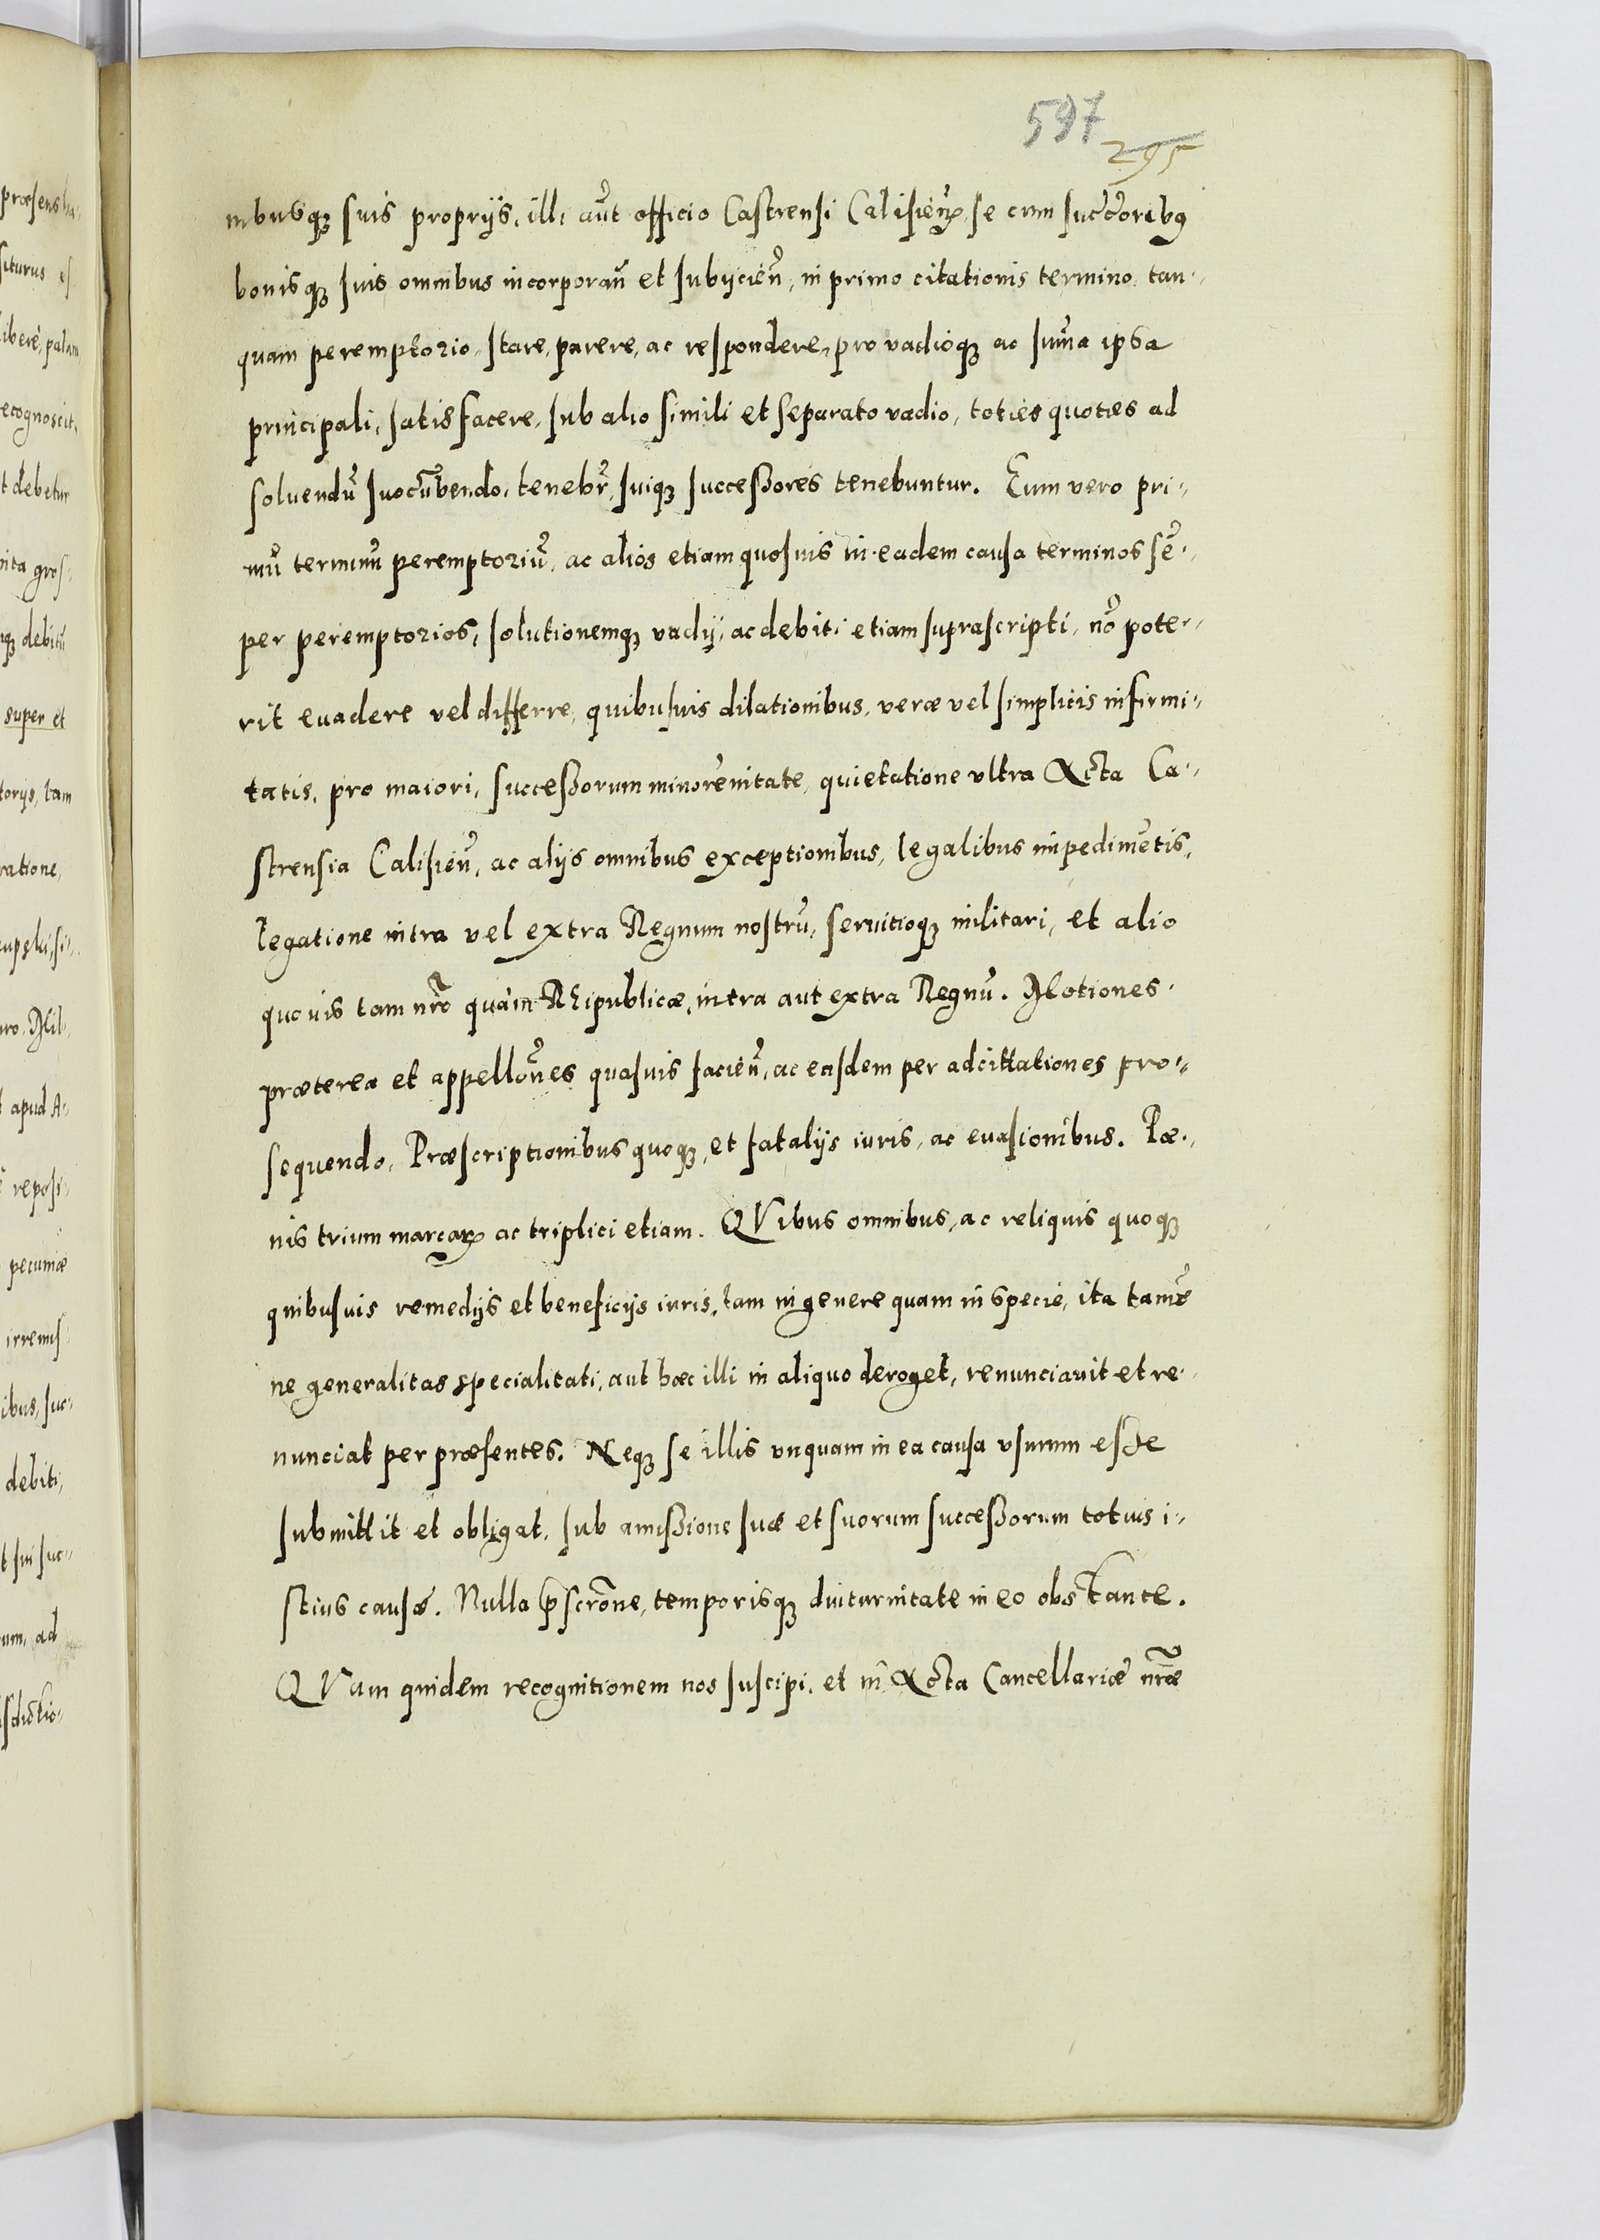 597
295
nibusq̃ suis proprijs, illi aũt officio Castrensi Calisieñ, se cum succ̃oribꝰ
bonisq̃ suis omnibus incorporañ et subijcieñ, in primo citationis termino tan-
quam peremptorio, stare, parere, ac respondere, pro vadioq̃ ac sum̃a ipsa
principali, satisfacere, sub alio simili et separato vadio, toties quoties ad
soluendũ succũbendo, tenebr̃, suiq̃ successores tenebuntur. Eum vero pri-
mũ terminũ peremptoriũ, ac alios etiam quosuis in eadem causa terminos sẽ-
per peremptorios, solutionemq̃ vadij, ac debiti etiam suprascripti, nõ pote-
rit euadere vel differre, quibusuis dilationibus, veræ vel simplicis infirmi-
tatis, pro maiori, successorum minorenitate, quietatione vltra Acta Ca-
strensia Calisieñ, ac alijs omnibus exceptionibus, legalibus impedimẽtis,
legatione intra vel extra Regnum nostrũ, seruitioq̃ militari, et alio
quouis tam nr̃o quàm Reipublicæ, intra aut extra Regnũ. Motiones
præterea et appellõnes quasuis facieñ, ac easdem per adcittationes pro-
sequendo, Præscriptionibus quoq̃, et fatalijs iuris, ac euasionibus. Pæ-
nis trium marcaꝝ ac triplici etiam. QVibus omnibus, ac reliquis quoq̃
quibusuis remedijs et beneficijs iuris, tam in genere quam in specie, ita tamẽ
ne generalitas specialitati, aut hæc illi in aliquo deroget, renunciauit et re-
nunciat per præsentes. Neq̃ se illis vnquam in ea causa vsurum esse
submittit et obligat, sub amissione suæ et suorum successorum totius i-
stius causæ. Nulla p̃scr̃one, temporisq̃ diuturnitate in eo obstante.
QVam quidem recognitionem nos suscipi, et in Acta Cancellariæ nr̃æ